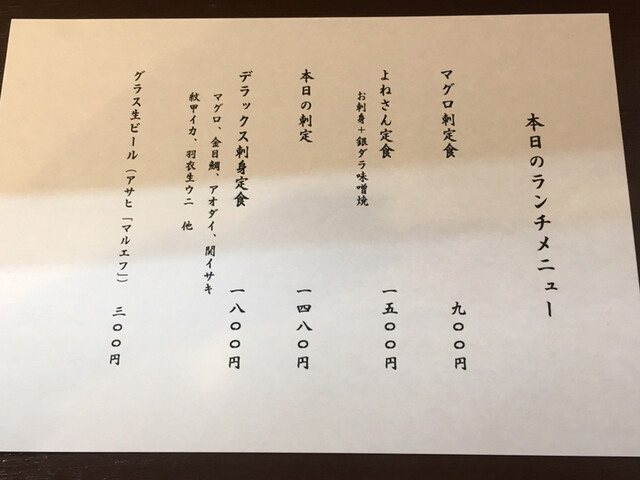 本日のランチメニュー
マグロ刺定食 九〇〇円
よねさん定食 一五〇〇円
お刺身+銀ダラ味噌焼
本日の刺定 一四八〇円
デラックス刺身定食 一八〇〇円
マグロ、金目鯛、アオダイ、関イサキ
紋甲イカ、羽衣生ウニ 他
グラス生ビール(アサヒ「マルエフ」) 三〇〇円